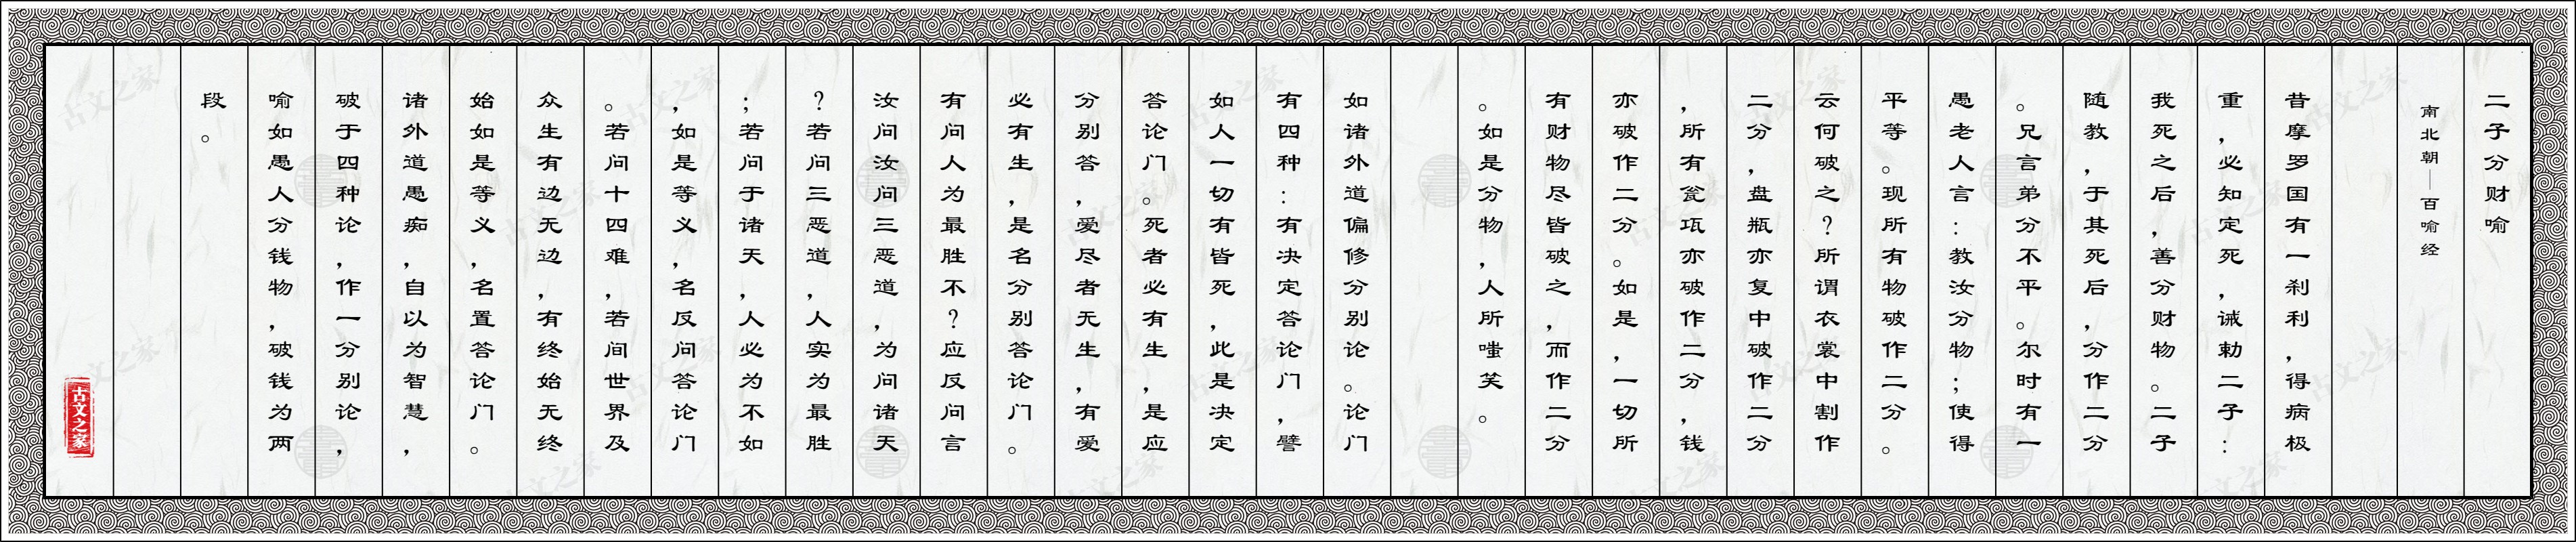 二子分财喻
南北朝—百喻经
昔摩罗国有一刹利，得病极
重，必知定死，诫勅二子：
我死之后，善分财物。二子
随教，于其死后，分作二分
。兄言弟分不平。尔时有一
愚老人言：教汝分物；使得
平等。现所有物破作二分。
云何破之？所谓衣裳中割作
二分，盘瓶亦复中破作二分
，所有瓮瓨亦破作二分，钱
亦破作二分。如是，一切所
有财物尽皆破之，而作二分
。如是分物，人所嗤笑。
如诸外道偏修分别论。论门
有四种：有决定答论门，譬
如人一切有皆死，此是决定
答论门。死者必有生，是应
分别答，爱尽者无生，有爱
必有生，是名分别答论门。
有问人为最胜不？应反问言
汝问汝问三恶道，为问诸天
？若问三恶道，人实为最胜
；若问于诸天，人必为不如
，如是等义，名反问答论门
。若问十四难，若间世界及
众生有边无边，有终始无终
始如是等义，名置答论门。
诸外道愚痴，自以为智慧，
破于四种论，作一分别论，
喻如愚人分钱物，破钱为两
段。
古文之家